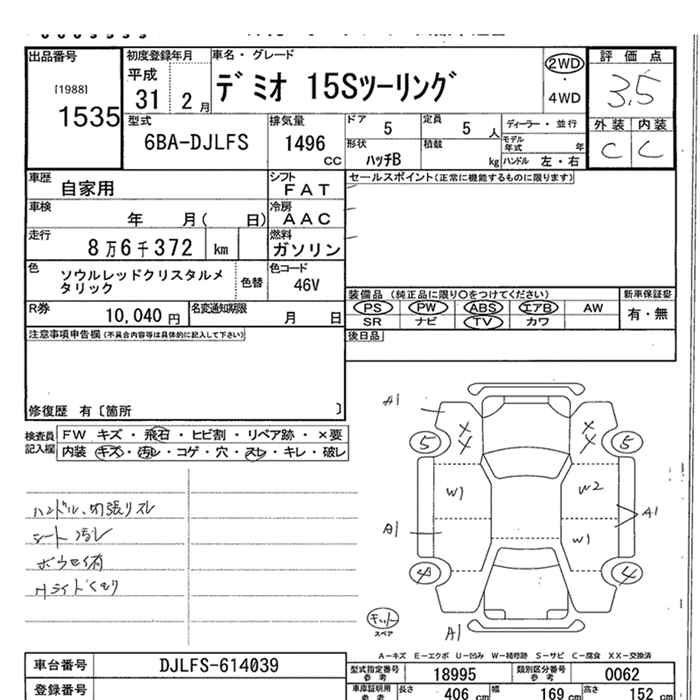 出品番号
[1988]
1535
初度登録年月
平成
31 2 月
車名・グレード
デミオ 15Sツーリング
2WD
・
4WD
評価点
3.5
型式
6BA-DJLFS
排気量
1496
CC
ドア 5
定員 5 人
ディーラー・並行
形状
ハッチB
積載 kg
モデル年式 年
ハンドル 左・右
外装 内装
C C
車歴 自家用
シフト
FAT
セールスポイント(正常に機能するものに限ります)
車検 年 月( 日)
冷房
AAC
走行 8万6千372 km
燃料
ガソリン
色 ソウルレッドクリスタルメ
タリック
色替
色コード
46V
装備品 (純正品に限り○をつけてください)
新車保証書
PS PW ABS エアB AW
有・無
SR ナビ TV カワ
R券 10,040 円
名変通知期限 月 日
後日品
注意事項申告欄(不具合内容等は具体的に記入して下さい)
修復歴 有〔箇所 〕
検査員
記入欄
FW キズ・飛石・ヒビ割・リペア跡・×要
内装 キズ・汚レ・コゲ・穴・スレ・キレ・破レ
ハンドル、内張リスレ
シート汚レ
ボウセイ有
Hライトくもり
A1
X X
X X
5 5
W1 W2
A1
A1
W1
4 4
キット
スペア
A1
A-キズ E-エクボ U-凹み W-補修跡 S-サビ C-腐食 XX-交換済
車台番号 DJLFS-614039
登録番号
型式指定番号
参考
18995
類別区分番号
参考
0062
車庫証明用
参考
長さ 406 cm
幅 169 cm
高さ 152 cm